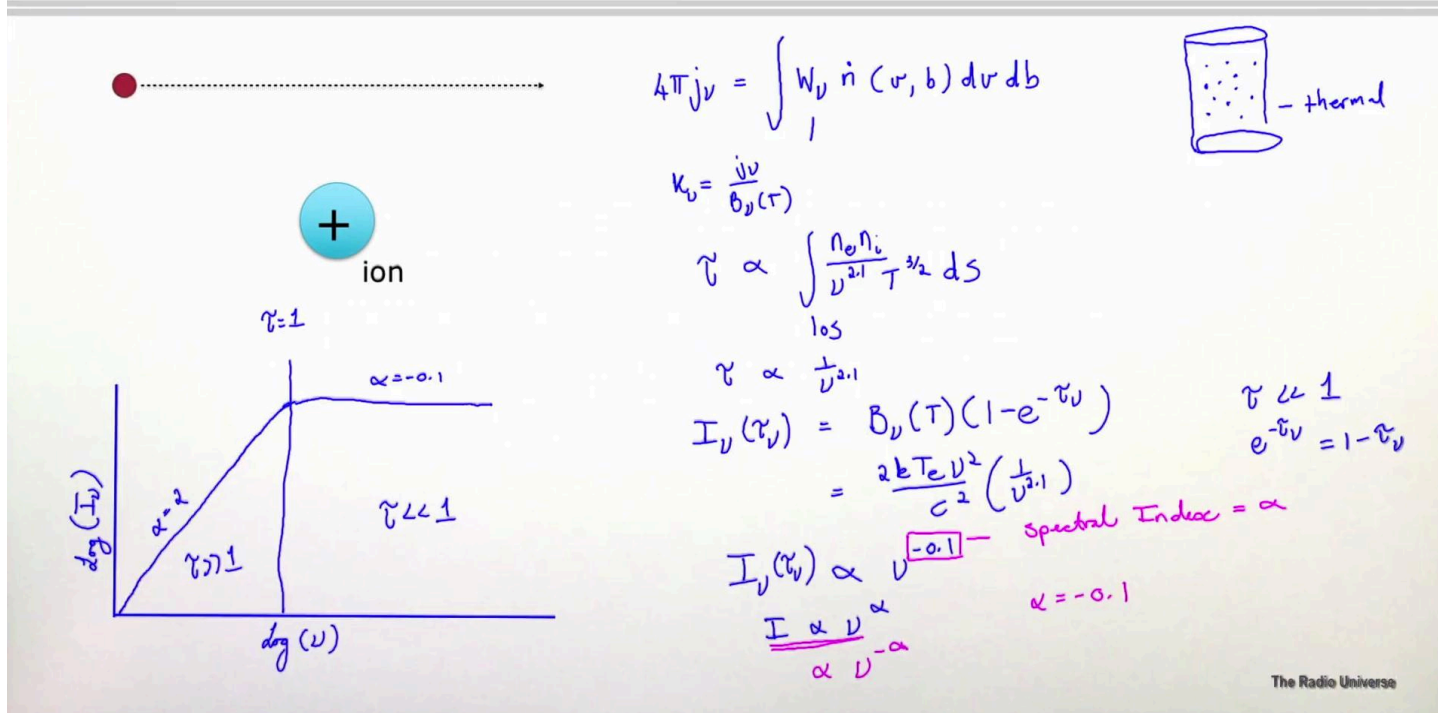 +
ion
τ=1
α=-0.1
log (Iν)
α=2
τ>>1
τ<<1
log (ν)
4π jν = ∫ Wν ṅ (v, b) dv db
Kν = jν / Bν(T)
τ ∝ ∫ nₑ nᵢ / ν^2.1 T^3/2 ds
los
τ ∝ 1/ν^2.1
Iν (τν) = Bν (T) (1-e^-τν)
= 2kTₑ ν² / c² (1/ν^2.1)
Iν(τν) ∝ ν^-0.1 — Spectral Index = α
I ∝ ν^α
α = -0.1
∝ ν^-α
- thermal
τ << 1
e^-τν = 1-τν
The Radio Universe